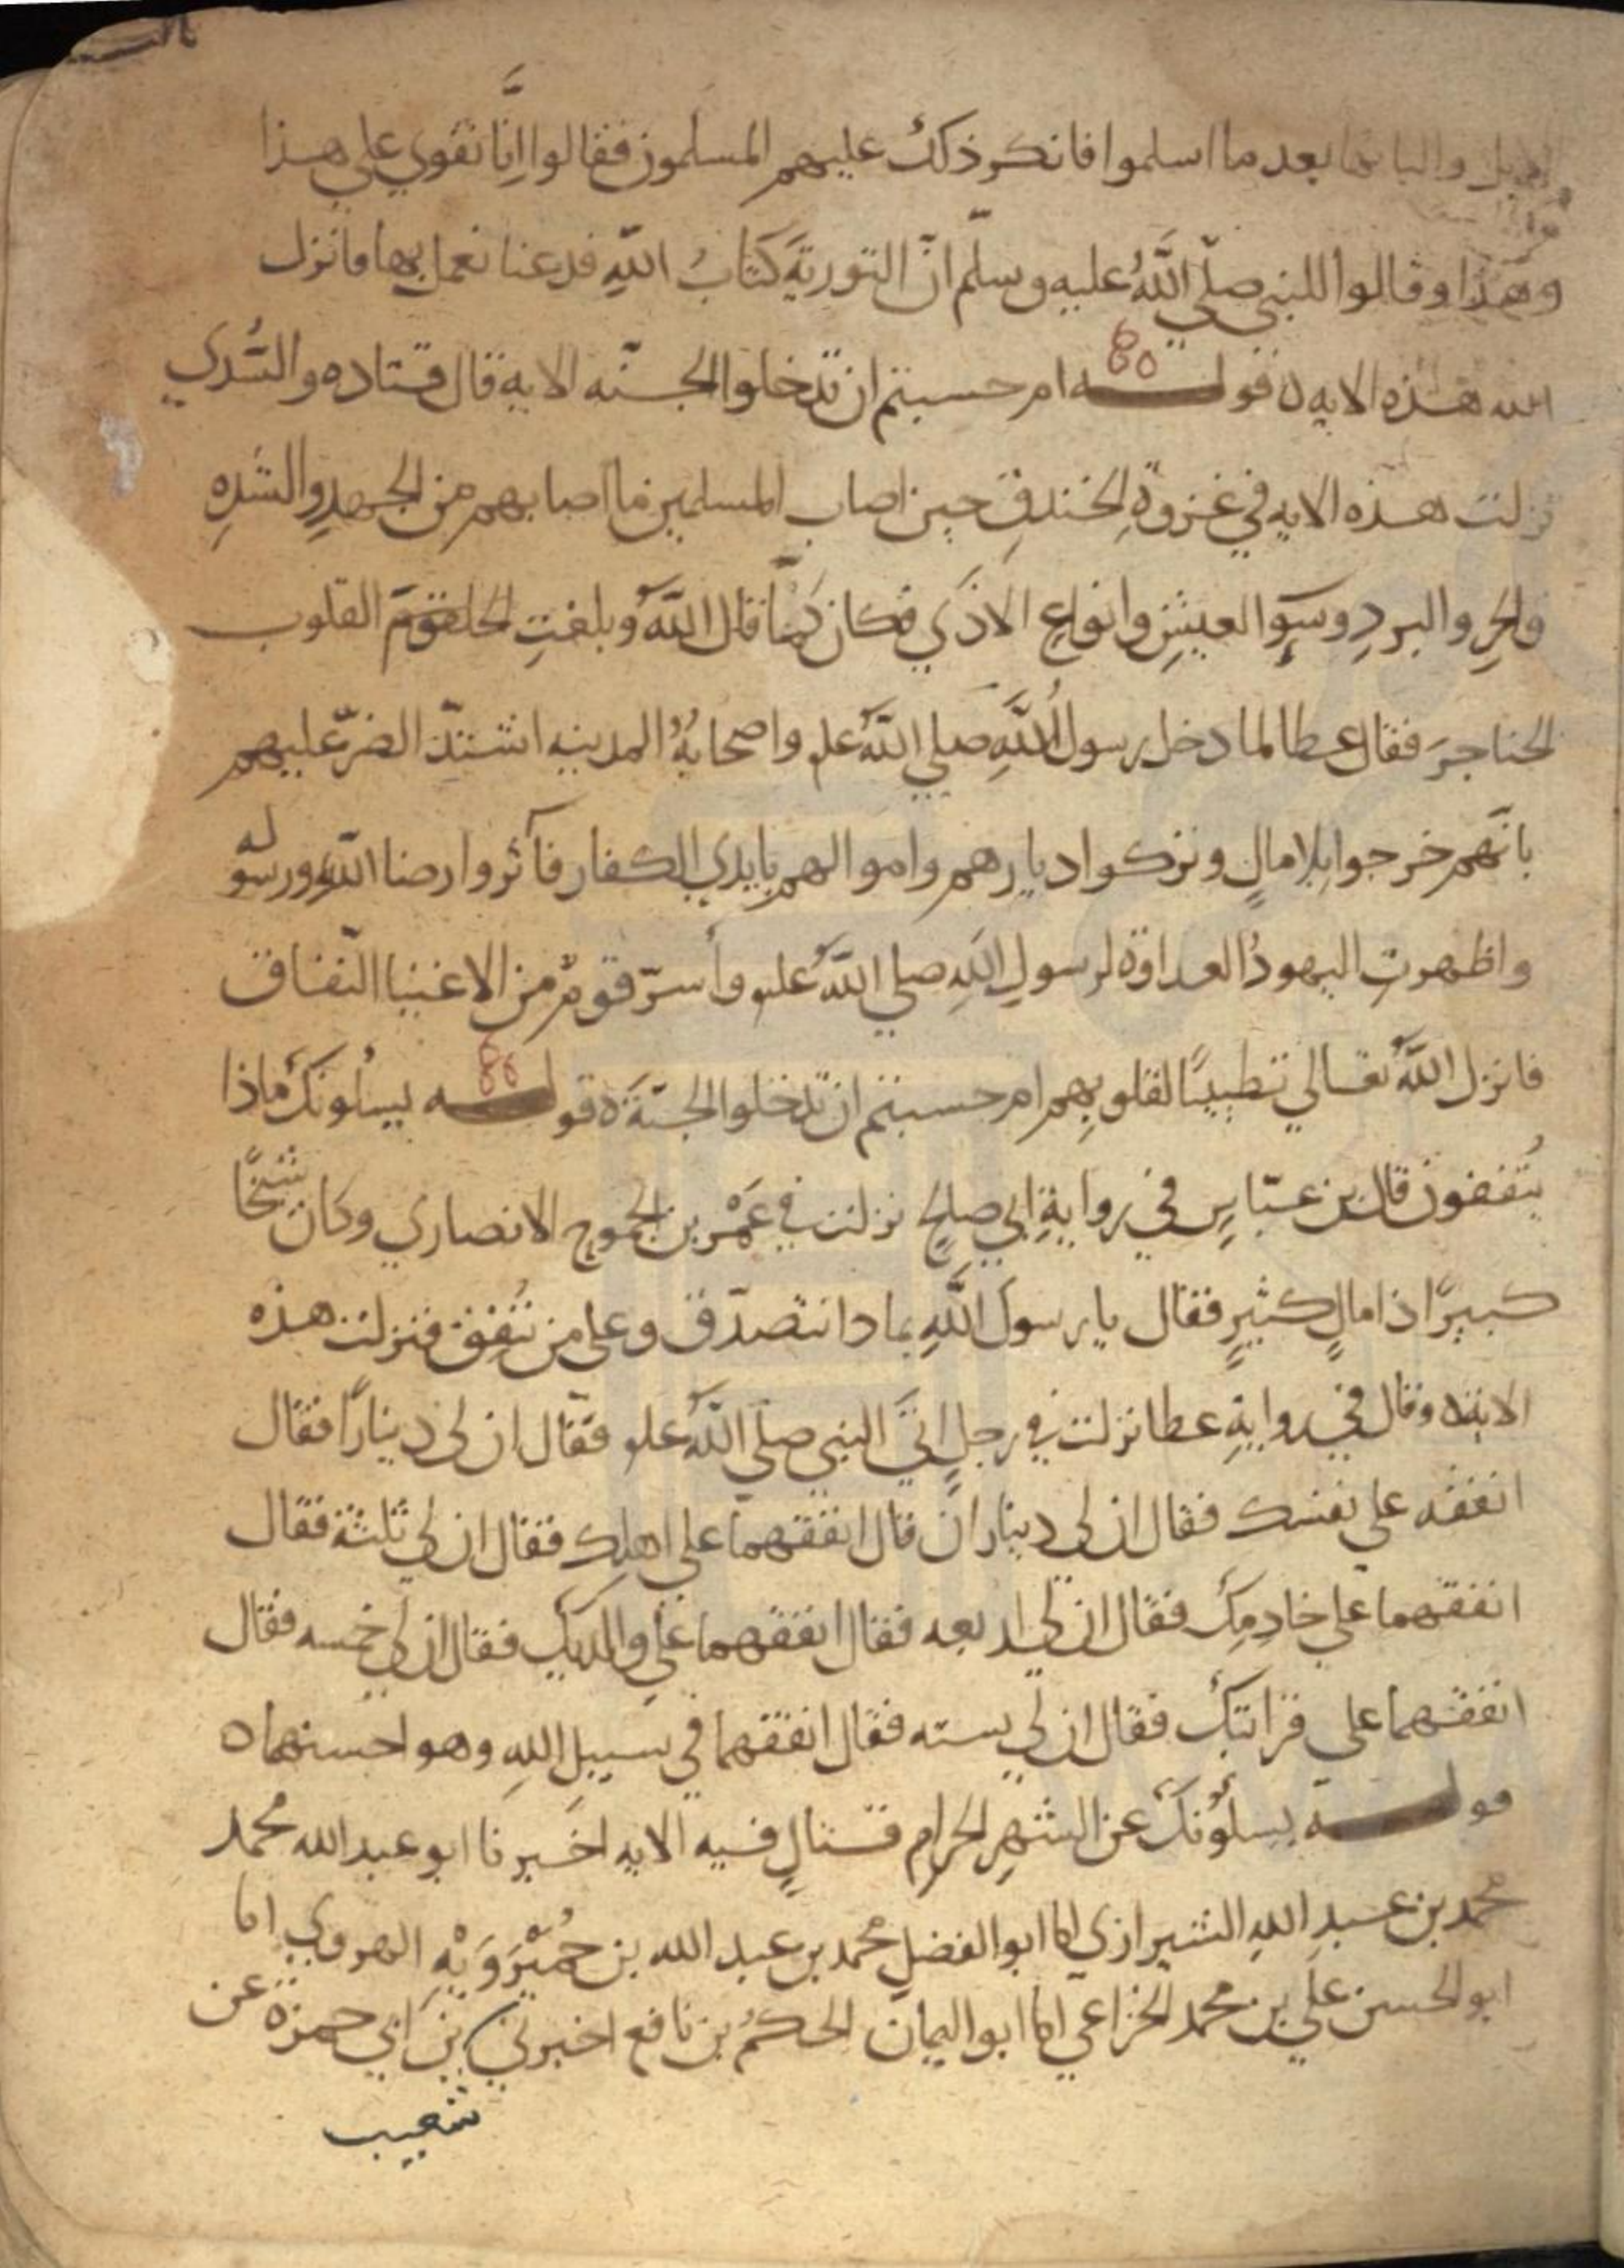 الابل والبانها بعد ما اسلموا فانكر ذلك عليهم المسلمون فقالوا اِنّا نقوي علي هذا
وهذا وقالوا للنبي صلّي اللّهُ عليه وسلّم انّ التوريةَ كتابُ اللّهِ فدعنا نعمل بها فانزل
الله هذه الايه ه قولـــه ام حسبتم ان تدخلوا الجنّه الايه قال قتاده والسُّدي
نزلت هذه الايه في غزوةِ الخندقِ حين اصاب المسلمين ما اصابهم من الجهدِ والشدهِ
والحرِ والبردِ وسوِٕ العيشِ وانواعِ الاذَي فكان كمَا قال اللّهُ وبلغتِ القلوب
الحناجرَ فقال عطا لما دخل رسول اللّهِ صلي اللّهُ علم واصحابهُ المدينه اشتدّ الضرّ عليهم
بانّهم خرجوا بلا مالٍ وتركوا ديارهم واموالهم بايدي الكفار فآثروا رضا اللّهِ ورسوله
واظهرتِ اليهودُ العداوةَ لرسولِ اللّهِ صلي اللّهُ علم وأسرّ قومٌ من الاغنيا النّفاق
فانزل اللّهُ تعالي تطييبًا لقلوبِهم ام حسبتم ان تدخلوا الجنّةَ ه قولـــه يسلُونكَ ماذا
يُنفقون قال بن عبّاسٍ في روايةِ ابي صلحٍ نزلت في عَمْر بن الجموح الانصاري وكان شيخًا
كبيرًا ذا مالٍ كثيرٍ فقال يا رسولَ اللّهِ بما دا نتصدّق وعلي من نُنفق فنزلت هذه
الايه ه وقال في روايةِ عطا نزلت في رجلٍ اتَي النبي صلّي اللّهُ علم فقال ان لي دينارًا فقال
انفقه علي نفسك فقال ان لي ديناران قال انفقهما علي اهلك فقال ان لي ثلثة فقال
انفقهما علي خادِمِكَ فقال ان لي اربعه فقال انفقهما علي والديك فقال ان لي خمسه فقال
انفقهما علي قرابتكَ فقال ان لي سته فقال انفقهما في سبيلِ اللهِ وهو احسنهما ه
قولـــه يسلُونكَ عن الشهرِ الحرامِ قتالٍ فيه الايه اخبرنا ابو عبد الله محمد
محمد بن عبدِ اللهِ الشيرازي انا ابو الفضلِ محمد بن عبد الله بن خُمَيْرَوَيْهِ الهروي انا
ابو الحسن علي بن محمد الخزاعي انا ابو اليمان الحكمُ بن نافع اخبرني بن ابي حمزة عن
شعيب